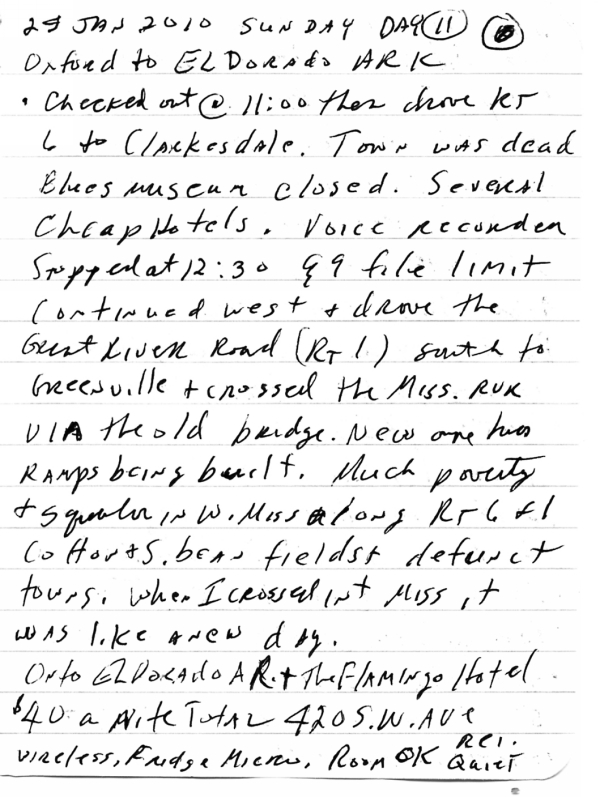 JAN 2010 SUNDAY DAY 11
Oxford to ELDORADO ARK
• Checked out @ 11:00 then drove RT
6 to Clarkesdale. Town was dead
Blues museum closed. Several
Cheap Hotels. Voice recorder
Stopped at 12:30 99 file limit
Continued west + drove the
Great River Road (RT 1) south to
Greenville + crossed the Miss. RVR
VIA the old bridge. New one has
RAMPS being built. Much poverty
+ squalor in W. Miss along RT 6 + 1
Cotton + S. bean fields + defunct
towns. When I crossed Miss it
was like a new day.
Onto ELDORADO AR. + The Flamingo Hotel
$40 a Nite Total 420 S.W. AVE
Wireless, Fridge Micro, Room OK
Quiet